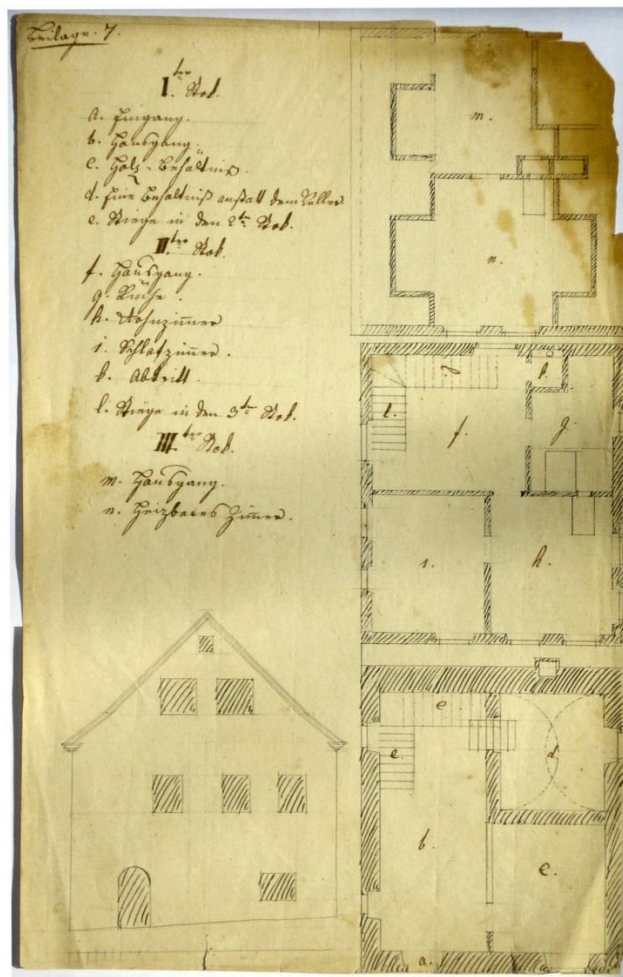 Beilage. 7.
I.ter Stok.
a. Eingang.
b. Hausgang.
c. Holz-Behältniß
d. Eine Behältniß anstatt dem Keller
e. Stiege in den 2ten Stok.
II.ter Stok.
f. Hausgang.
g. Küche.
h. Wohnzimmer
i. Schlafzimmer.
k. Abtritt.
l. Stiege in den 3ten Stok.
III.ter Stok.
m. Hausgang.
n. Heizbares Zimmer.
m.
n.
k.
l.
f.
g.
i.
h.
e
e.
d
b.
c.
a.